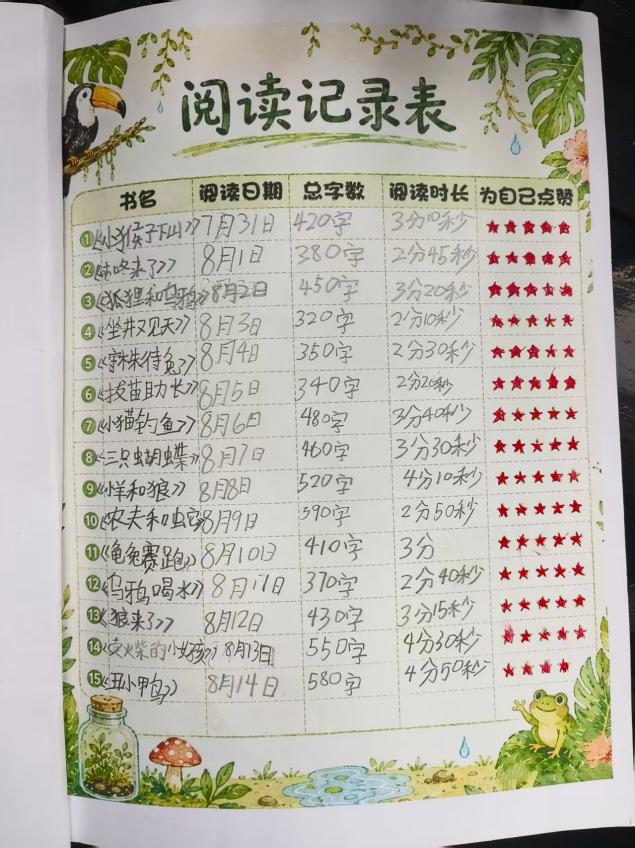 阅读记录表
书名 阅读日期 总字数 阅读时长 为自己点赞
1 《小猴子下山》 7月31日 420字 3分10秒 ★★★★★
2 《咕咚来了》 8月1日 380字 2分45秒 ★★★★★
3 《狐狸和乌鸦》 8月2日 450字 3分20秒 ★★★★★
4 《坐井观天》 8月3日 320字 2分10秒 ★★★★★
5 《守株待兔》 8月4日 350字 2分30秒 ★★★★★
6 《拔苗助长》 8月5日 340字 2分20秒 ★★★★★
7 《小猫钓鱼》 8月6日 480字 3分40秒 ★★★★★
8 《三只蝴蝶》 8月7日 460字 3分30秒 ★★★★★
9 《羊和狼》 8月8日 520字 4分10秒 ★★★★★
10 《农夫和蛇》 8月9日 390字 2分50秒 ★★★★★
11 《龟兔赛跑》 8月10日 410字 3分 ★★★★★
12 《乌鸦喝水》 8月11日 370字 2分40秒 ★★★★★
13 《狼来了》 8月12日 430字 3分15秒 ★★★★★
14 火柴的小女孩》 8月13日 550字 4分30秒 ★★★★★
15 《丑小鸭》 8月14日 580字 4分50秒 ★★★★